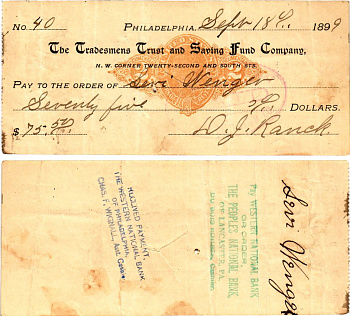 No. 40 Philadelphia, Sept 18th. 1899
The Tradesmens Trust and Saving Fund Company,
N. W. CORNER TWENTY-SECOND AND SOUTH STS.
Pay to the order of Levi Wenger
Seventy five Dollars.
$ 75.50 D. J. Ranck.
RECEIVED PAYMENT,
THE WESTERN NATIONAL BANK
OF PHILADELPHIA.
CHAS. F. WIGNALL, Asst. Cashier.
Pay WESTERN NATIONAL BANK
OR ORDER,
THE PEOPLES NATIONAL BANK,
OF LANCASTER, PA.
Levi Wenger